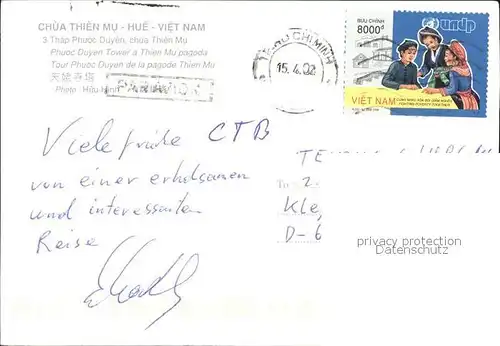 CHÙA THIÊN MỤ - HUẾ - VIỆT NAM
3 Tháp Phước Duyên, chùa Thiên Mụ
Phuoc Duyen Tower a Thien Mu pagoda
Tour Phuoc Duyen de la pagode Thien Mu
天姥寺塔
Photo : Hữu
PAR AVION
CHI MINH
15.4.02
BƯU CHÍNH
8000đ
undp
VIỆT NAM
Viele Grüße CTB
von einer erholsamen
und interessanten
Reise
Kle
D-6
privacy protection
Datenschutz